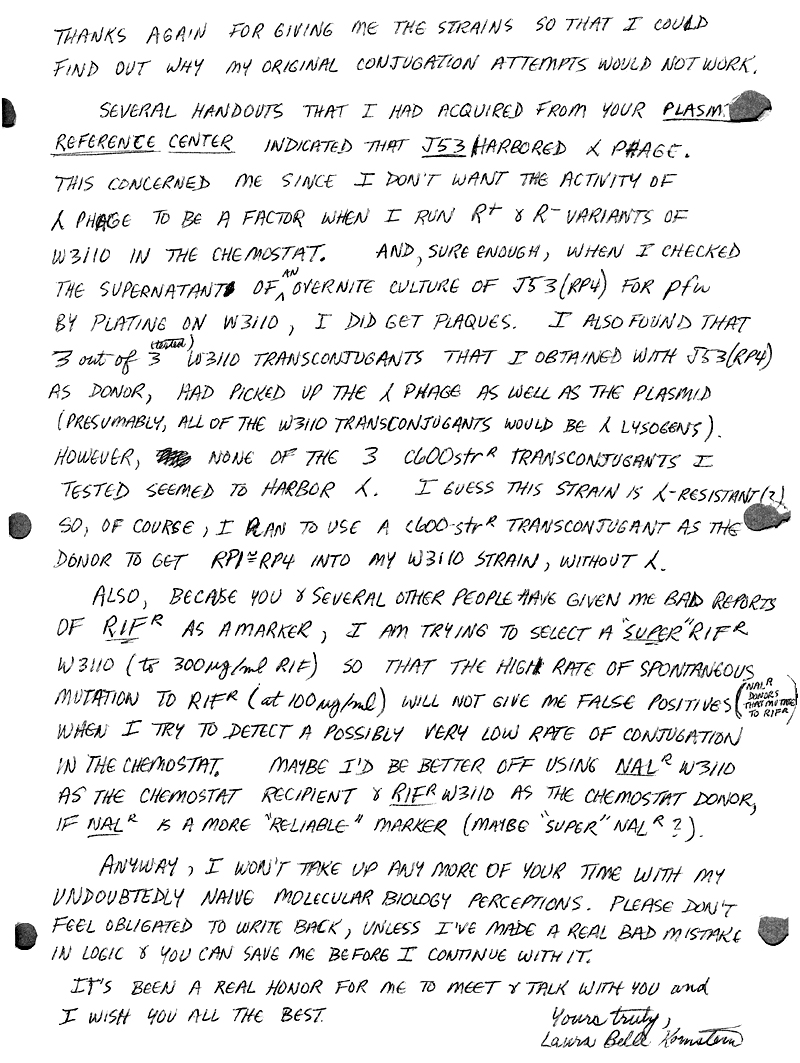 THANKS AGAIN FOR GIVING ME THE STRAINS SO THAT I COULD
FIND OUT WHY MY ORIGINAL CONJUGATION ATTEMPTS WOULD NOT WORK.
SEVERAL HANDOUTS THAT I HAD ACQUIRED FROM YOUR PLASM
REFERENCE CENTER INDICATED THAT J53 HARBORED λ PHAGE.
THIS CONCERNED ME SINCE I DON'T WANT THE ACTIVITY OF
λ PHAGE TO BE A FACTOR WHEN I RUN R⁺ & R⁻ VARIANTS OF
W3110 IN THE CHEMOSTAT. AND, SURE ENOUGH, WHEN I CHECKED
THE SUPERNATANT OF AN OVERNITE CULTURE OF J53(RP4) FOR pfu
BY PLATING ON W3110, I DID GET PLAQUES. I ALSO FOUND THAT
3 out of 3 (tested) W3110 TRANSCONJUGANTS THAT I OBTAINED WITH J53(RP4)
AS DONOR, HAD PICKED UP THE λ PHAGE AS WELL AS THE PLASMID
(PRESUMABLY, ALL OF THE W3110 TRANSCONJUGANTS WOULD BE λ LYSOGENS).
HOWEVER, NONE OF THE 3 C600strᴿ TRANSCONJUGANTS I
TESTED SEEMED TO HARBOR λ. I GUESS THIS STRAIN IS λ-RESISTANT(?)
SO, OF COURSE, I PLAN TO USE A C600-strᴿ TRANSCONJUGANT AS THE
DONOR TO GET RP1≅RP4 INTO MY W3110 STRAIN, WITHOUT λ.
ALSO, BECASE YOU & SEVERAL OTHER PEOPLE HAVE GIVEN ME BAD REPORTS
OF RIFᴿ AS A MARKER, I AM TRYING TO SELECT A "SUPER" RIFᴿ
W3110 (to 300µg/ml RIF) SO THAT THE HIGH RATE OF SPONTANEOUS
MUTATION TO RIFᴿ (at 100µg/ml) WILL NOT GIVE ME FALSE POSITIVES (NALᴿ DONORS THAT MUTATE TO RIFᴿ)
WHEN I TRY TO DETECT A POSSIBLY VERY LOW RATE OF CONJUGATION
IN THE CHEMOSTAT. MAYBE I'D BE BETTER OFF USING NALᴿ W3110
AS THE CHEMOSTAT RECIPIENT & RIFᴿ W3110 AS THE CHEMOSTAT DONOR,
IF NALᴿ IS A MORE "RELIABLE" MARKER (MAYBE "SUPER" NALᴿ?).
ANYWAY, I WON'T TAKE UP ANY MORE OF YOUR TIME WITH MY
UNDOUBTEDLY NAIVE MOLECULAR BIOLOGY PERCEPTIONS. PLEASE DON'T
FEEL OBLIGATED TO WRITE BACK, UNLESS I'VE MADE A REAL BAD MISTAKE
IN LOGIC & YOU CAN SAVE ME BEFORE I CONTINUE WITH IT.
IT'S BEEN A REAL HONOR FOR ME TO MEET & TALK WITH YOU and
I WISH YOU ALL THE BEST.
Yours truly,
Laura Belle Kornstein